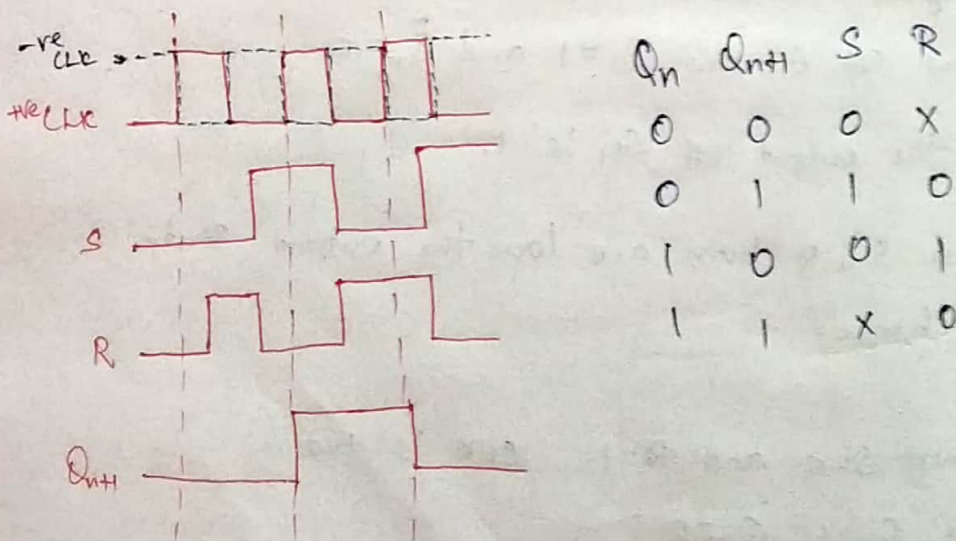 -ve CLK
+ve CLK
S
R
Qn+1
Qn Qn+1 S R
0 0 0 X
0 1 1 0
1 0 0 1
1 1 X 0